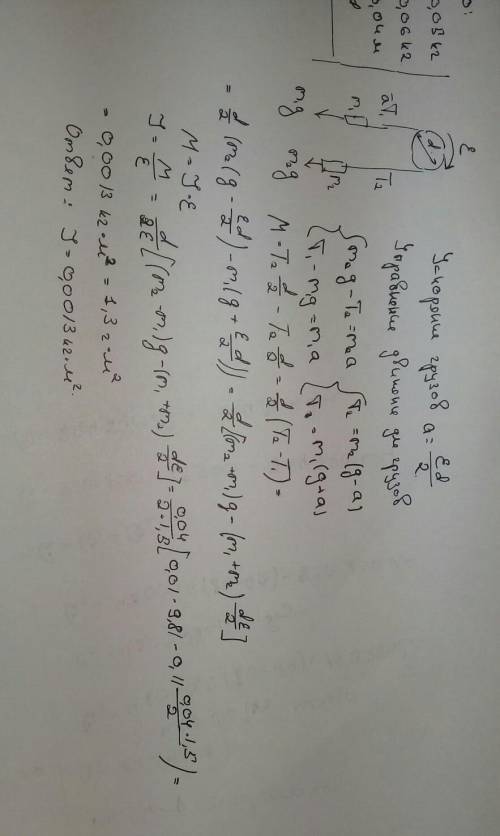 0:
0,05 кг
0,06 кг
0,04 м
ε
d
āT₁
T₂
m₁
m₂
m₁g
m₂g
Ускорение грузов a = εd/2
Уравнение движения для грузов
{m₂g - T₂ = m₂a {T₂ = m₂(g-a)
{T₁ - m₁g = m₁a {T₁ = m₁(g+a)
M = T₂ d/2 - T₂ d/2 = d/2 (T₂ - T₁) =
= d/2 (m₂(g - εd/2) - m₁(g + εd/2)) = d/2 [(m₂+m₁)g - (m₁+m₂) dε/2]
M = J·ε
J = M/ε = d/2ε [(m₂-m₁)g - (m₁+m₂) dε/2] = 0,04/2·1,5 [0,01·9,81 - 0,11 0,04·1,5/2)] =
= 0,0013 кг·м² = 1,3 г·м²
Ответ: J = 0,0013 кг·м².